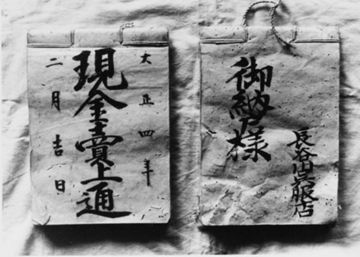 大正四年
現金賣上通
二月吉日
御納様
長谷川呉服店